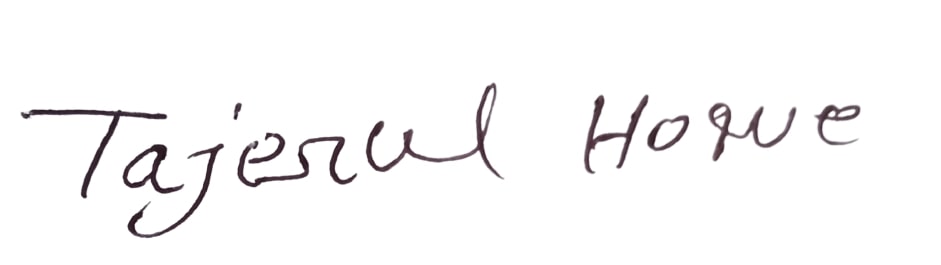 Tajerul Hoque